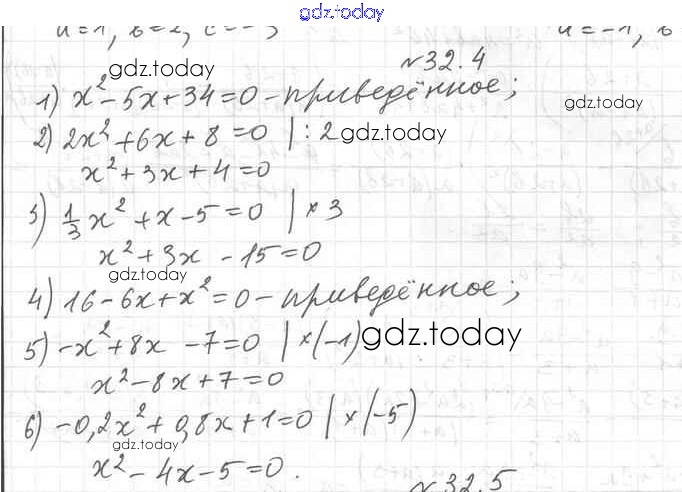 gdz.today
a=1, b=2, c=-3
a=-1, b
№32.4
gdz.today
1) x²-5x+34=0 - приведённое;
gdz.today
2) 2x²+6x+8=0 |:2
gdz.today
x²+3x+4=0
3) 1/3x²+x-5=0 |×3
x²+3x-15=0
gdz.today
4) 16-6x+x²=0 - приведённое;
5) -x²+8x-7=0 |×(-1)
gdz.today
x²-8x+7=0
6) -0,2x²+0,8x+1=0 |×(-5)
gdz.today
x²-4x-5=0.
№32.5